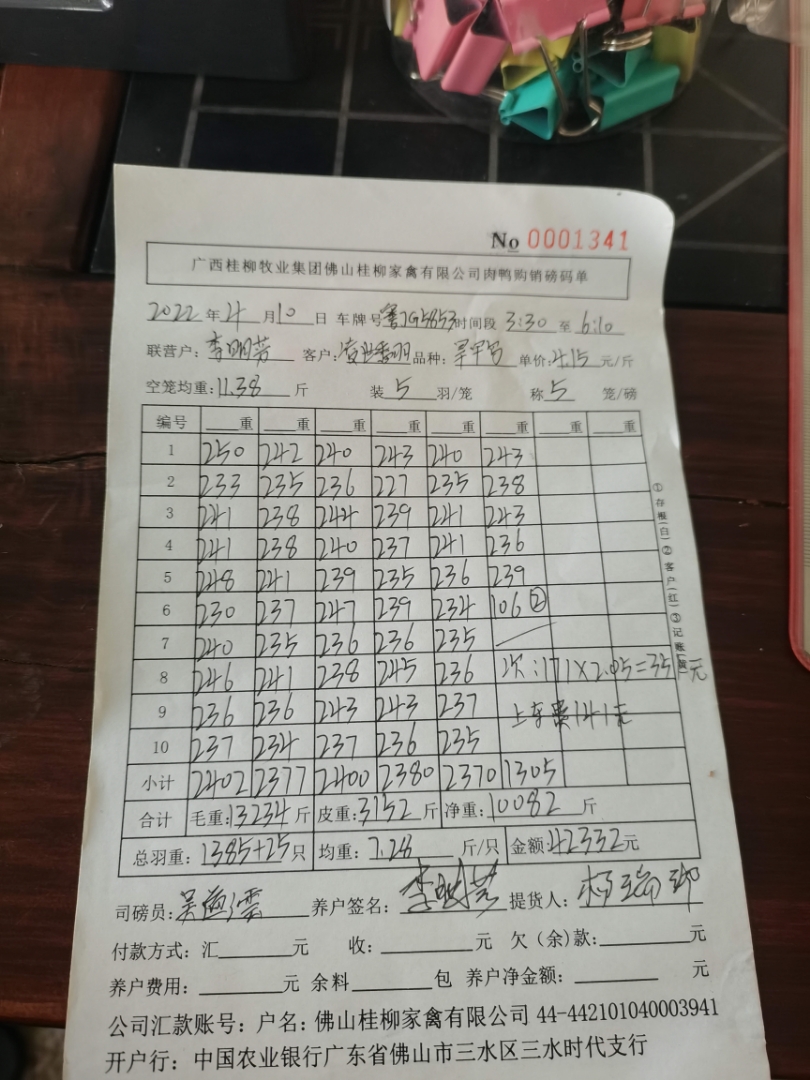 No 0001341
广西桂柳牧业集团佛山桂柳家禽有限公司肉鸭购销磅码单
2022年4月10日 车牌号粤JG5853时间段 3:30 至 6:10
联营户:李明芳 客户: 品种: 单价:4.15 元/斤
空笼均重:11.38 斤 装 5 羽/笼 称 5 笼/磅
编号 重 重 重 重 重 重 重 重
1 250 242 240 243 240 243
2 233 235 236 227 235 238
3 241 238 244 239 241 243
4 241 238 240 237 241 236
5 248 241 239 235 236 239
6 230 237 247 239 234 106②
7 240 235 236 236 235
8 246 241 238 245 236 次:171×2.05=351元
9 236 236 243 243 237 上车费141元
10 237 234 237 236 235
小计 2402 2377 2400 2380 2370 1305
合计 毛重:13234斤 皮重:3152斤 净重:10082 斤
总羽重:1385+25只 均重:7.28 斤/只 金额:42332元
司磅员: 养户签名:李明芳 提货人:
付款方式:汇 元 收: 元 欠(余)款: 元
养户费用: 元 余料 包 养户净金额: 元
公司汇款账号:户名:佛山桂柳家禽有限公司 44-442101040003941
开户行:中国农业银行广东省佛山市三水区三水时代支行
①存根(白)②客户(红)③记账(黄)